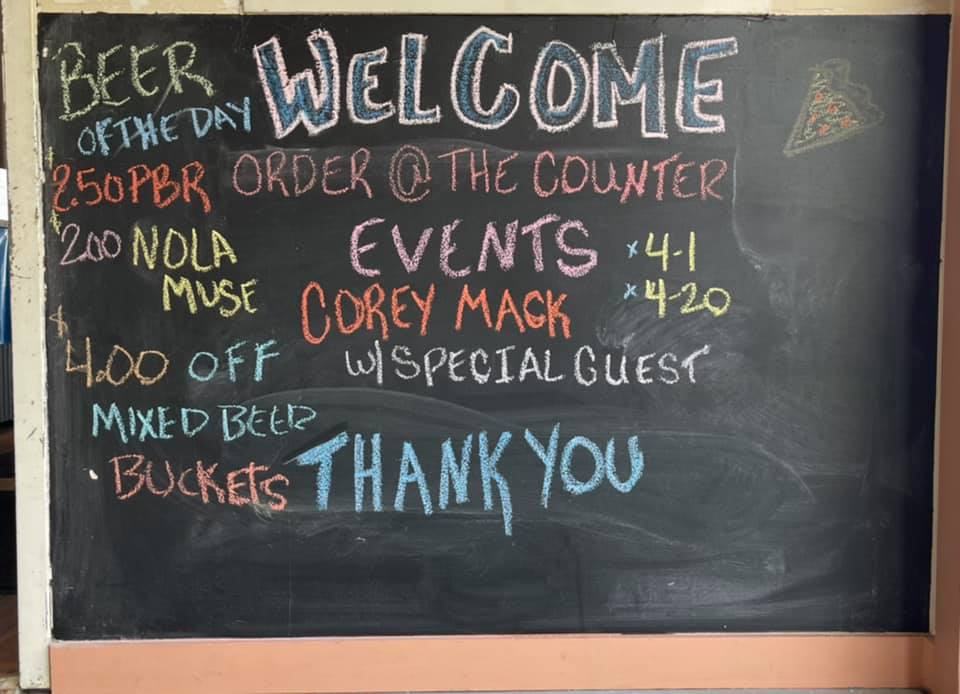 WELCOME
ORDER @ THE COUNTER
EVENTS
x 4-1
x 4-20
COREY MACK
W/ SPECIAL GUEST
THANK YOU
BEER
OF THE DAY
$2.50 PBR
$2.00 NOLA
MUSE
$4.00 OFF
MIXED BEER
BUCKETS